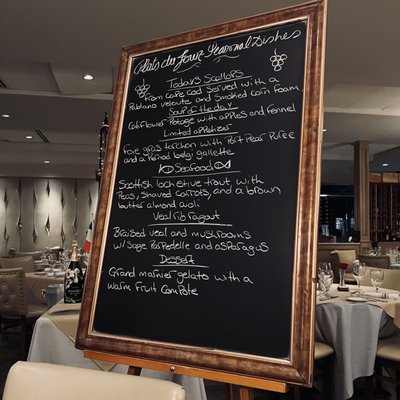 Plats du jour Seasonal Dishes
Todays Scallops
From Cape Cod Served with a
Poblano veloute and Smoked corn foam.
Soup of the day
Cauliflower Potage with apples and fennel
Limited appetizer
Foie gras torchon with Port Pear Puree
and a
Seafood
Scottish loch etive trout, with
Peas, Shaved carrots, and a brown
butter almond aioli
Veal rib Ragout
Braised veal and mushrooms
w/Sage Parpedelle and asparagus
Dessert
Grand marnier gelato with a
warm Fruit Compote